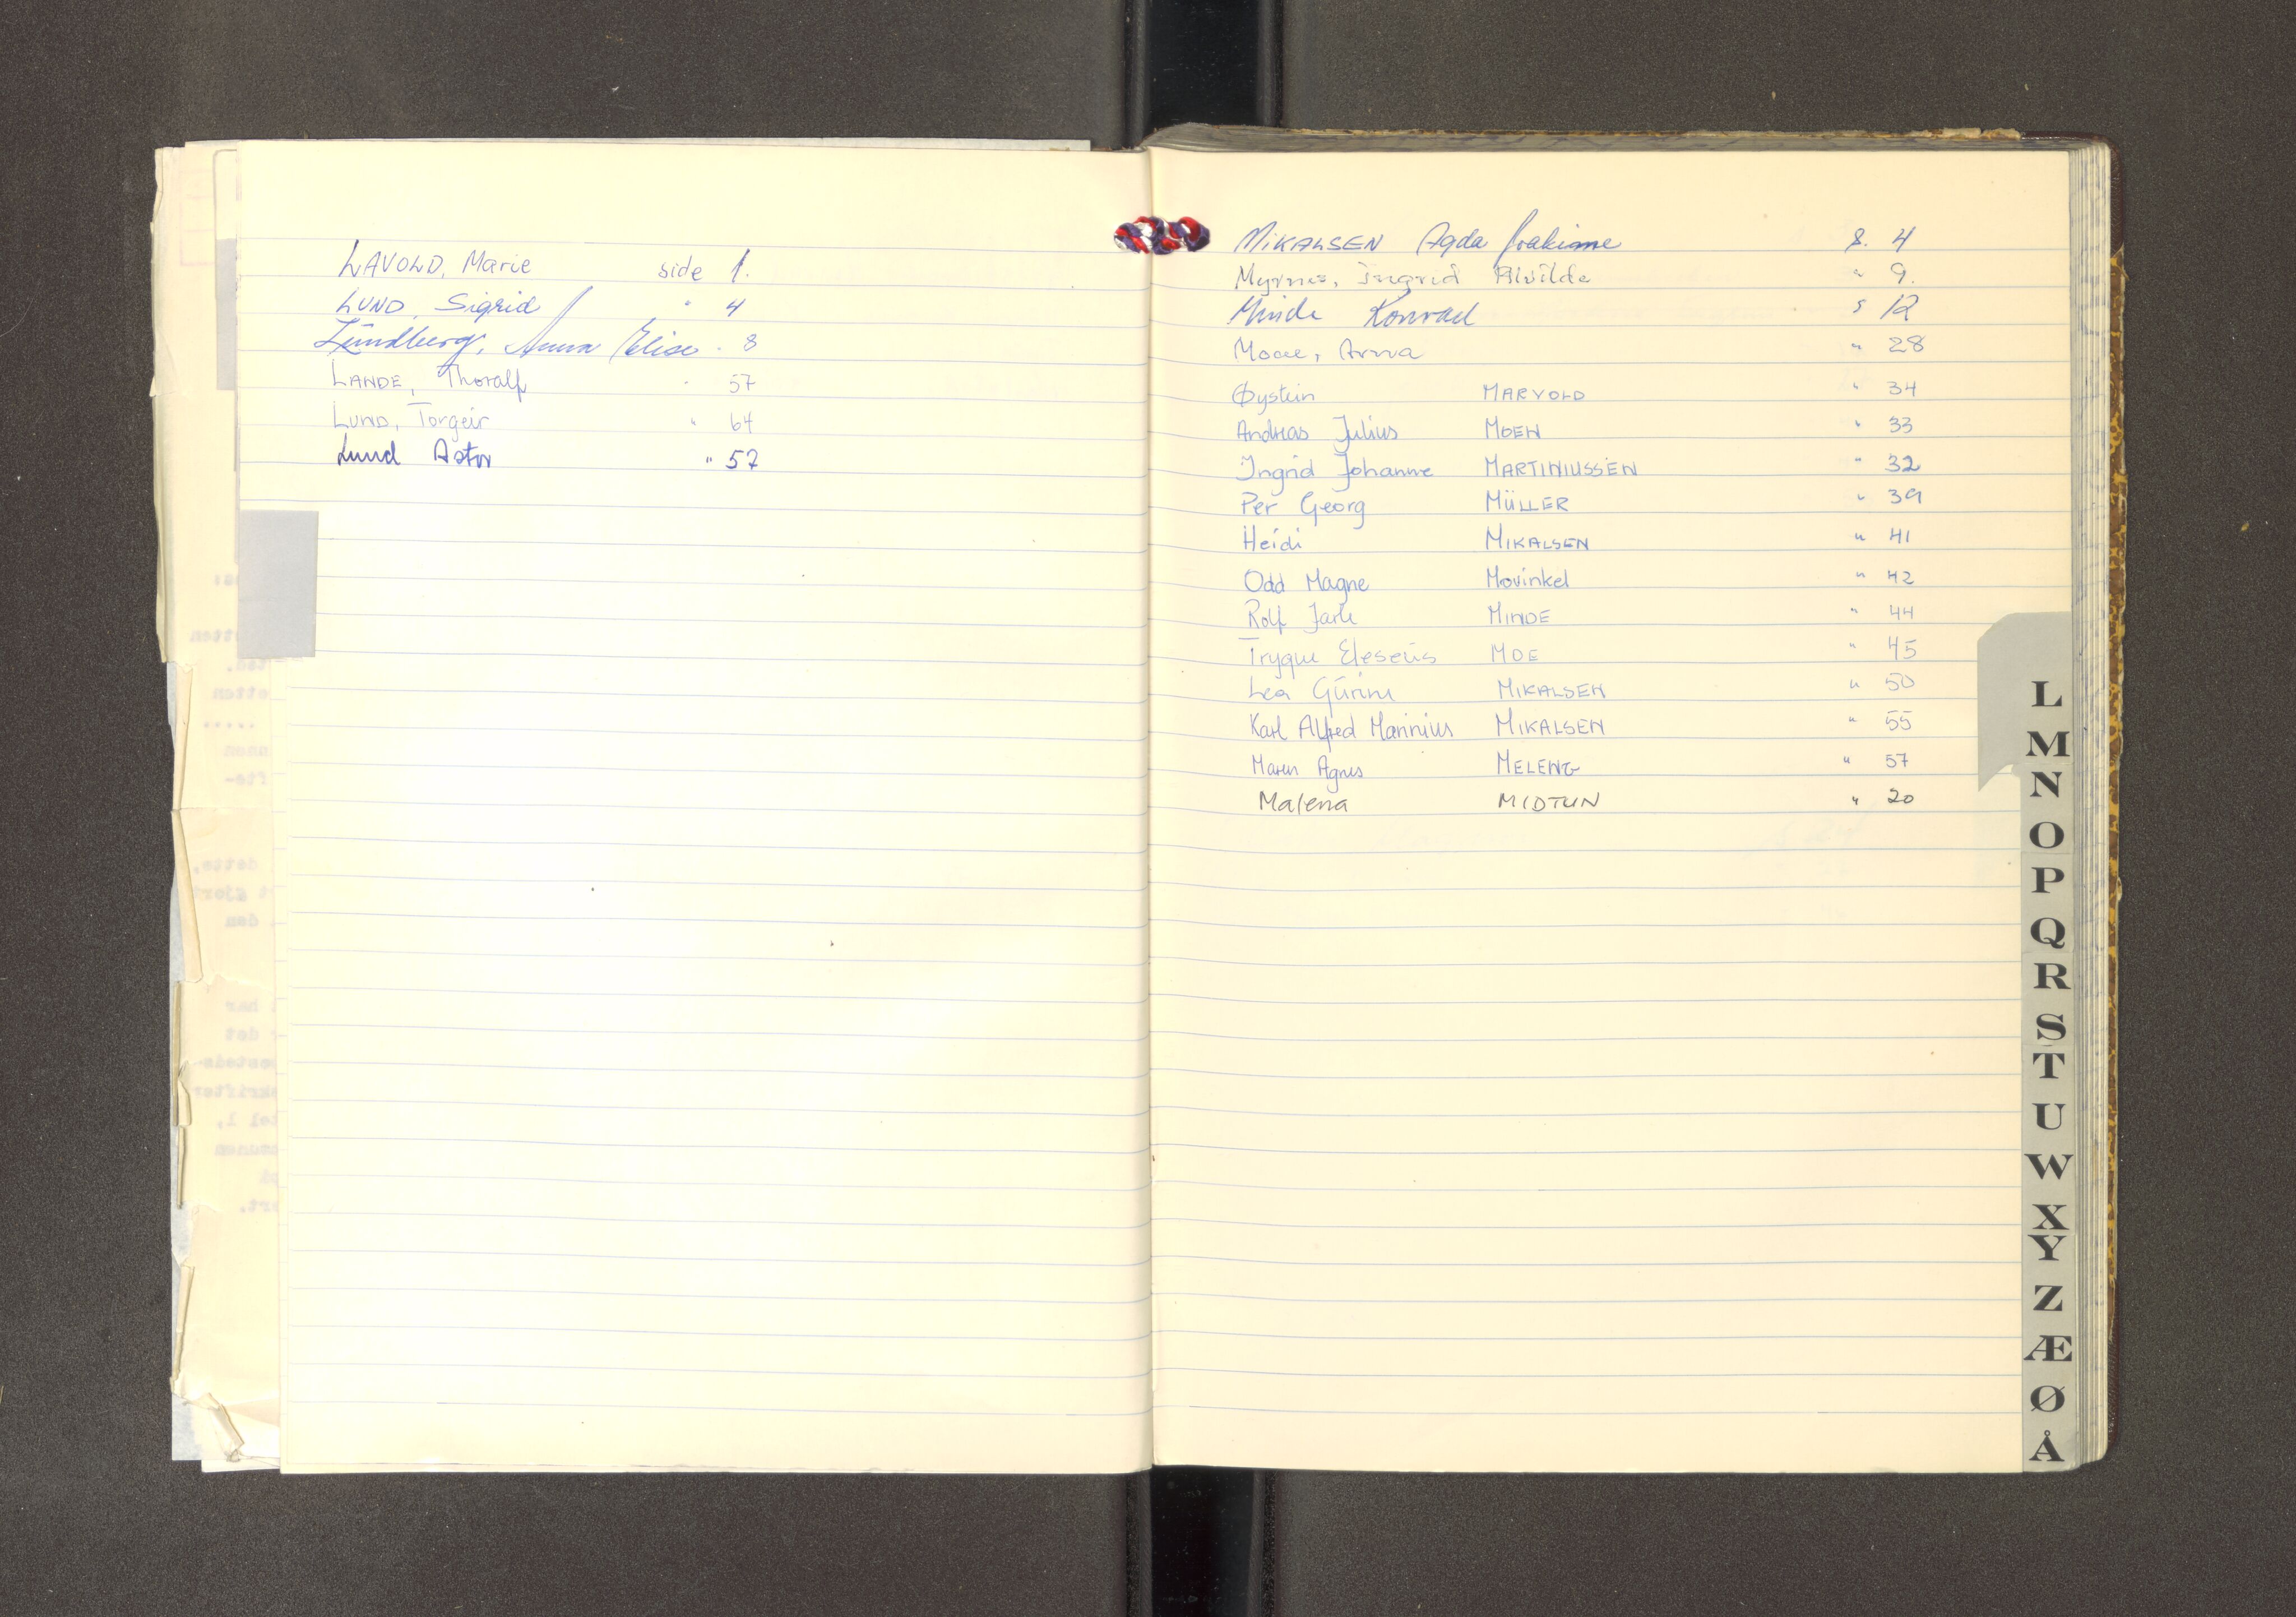 LAVOLD, Marie side 1.
LUND, Sigrid " 4
Lundberg, Anna Elise " 8
LANDE, Thoralf " 57
LUND, Torgeir " 64
Lund Astor " 57
MIKALSEN Agda Joakime s. 4
Myrnes, Ingrid Alvilde " 9.
Minde Konrad s 12
Moae, Anna " 28
Øystein MARVOLD " 34
Andreas Julius MOEN " 33
Ingrid Johanne MARTINIUSSEN " 32
Per Georg MÜLLER " 39
Heidi MIKALSEN " 41
Odd Magne Movinkel " 42
Rolf Jarle MINDE " 44
Trygve Eleseus MOE " 45
Lea MIKALSEN " 50
Karl Alfred Marinius MIKALSEN " 55
Maren Agnes MELENG " 57
Malena MIDTUN " 20
L
M
N
O
P
Q
R
S
T
U
W
X
Y
Z
Æ
Ø
Å